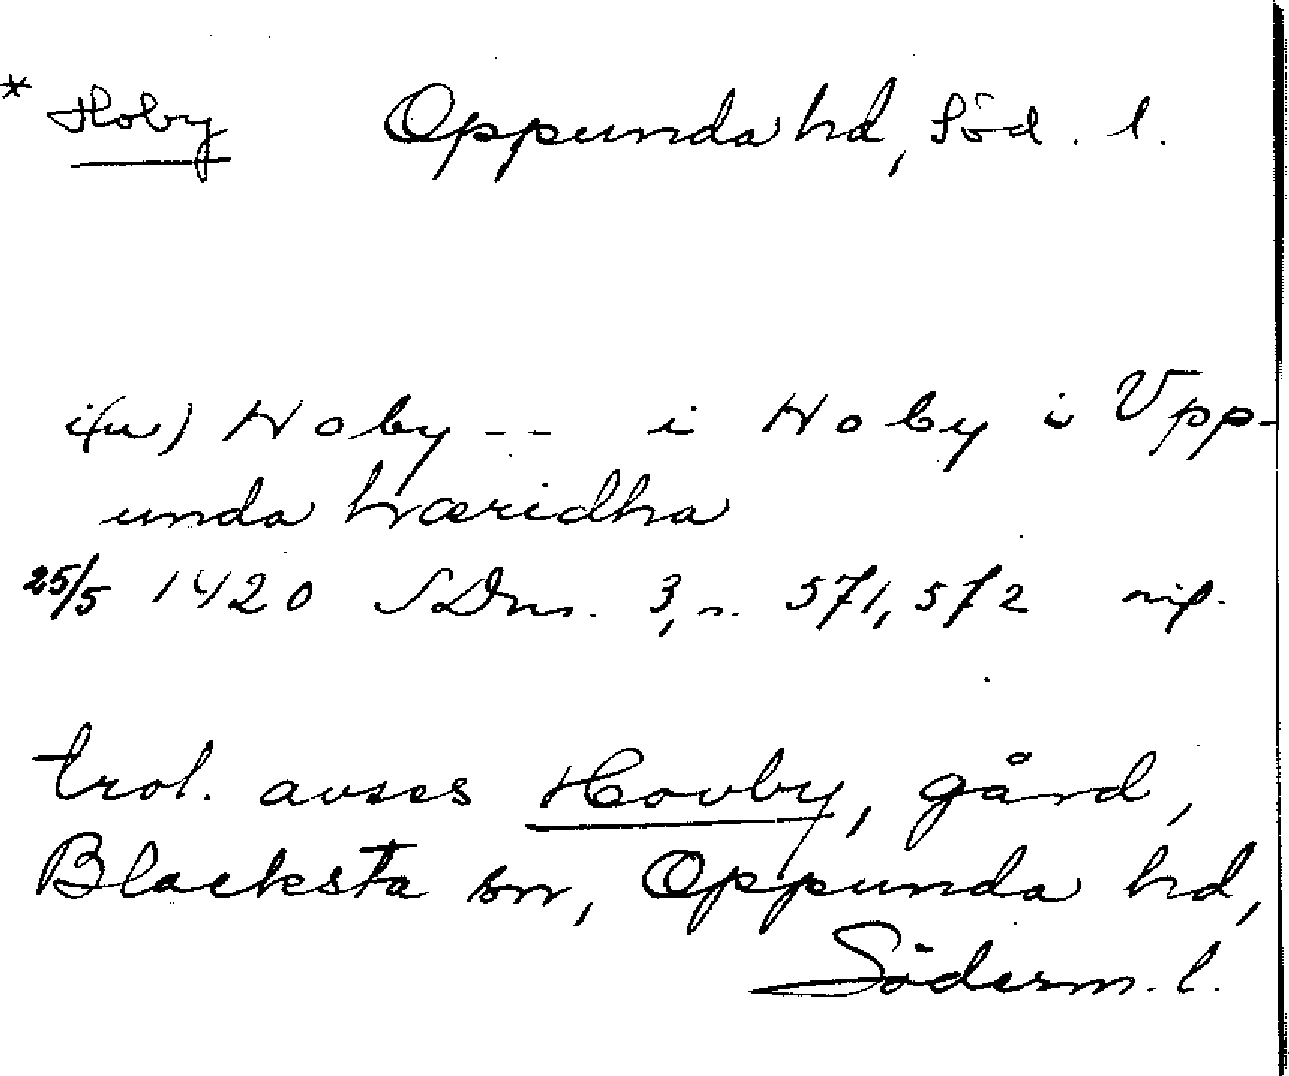 * Hoby Oppunda hd, Söd. l.
i(w) Hoby -- i Hoby i Vpp-
unda hæridha
25/5 1420 SDns. 3, n. 571, 572
trol. avses Hovby, gård,
Blacksta sn, Oppunda hd,
Söderm. l.